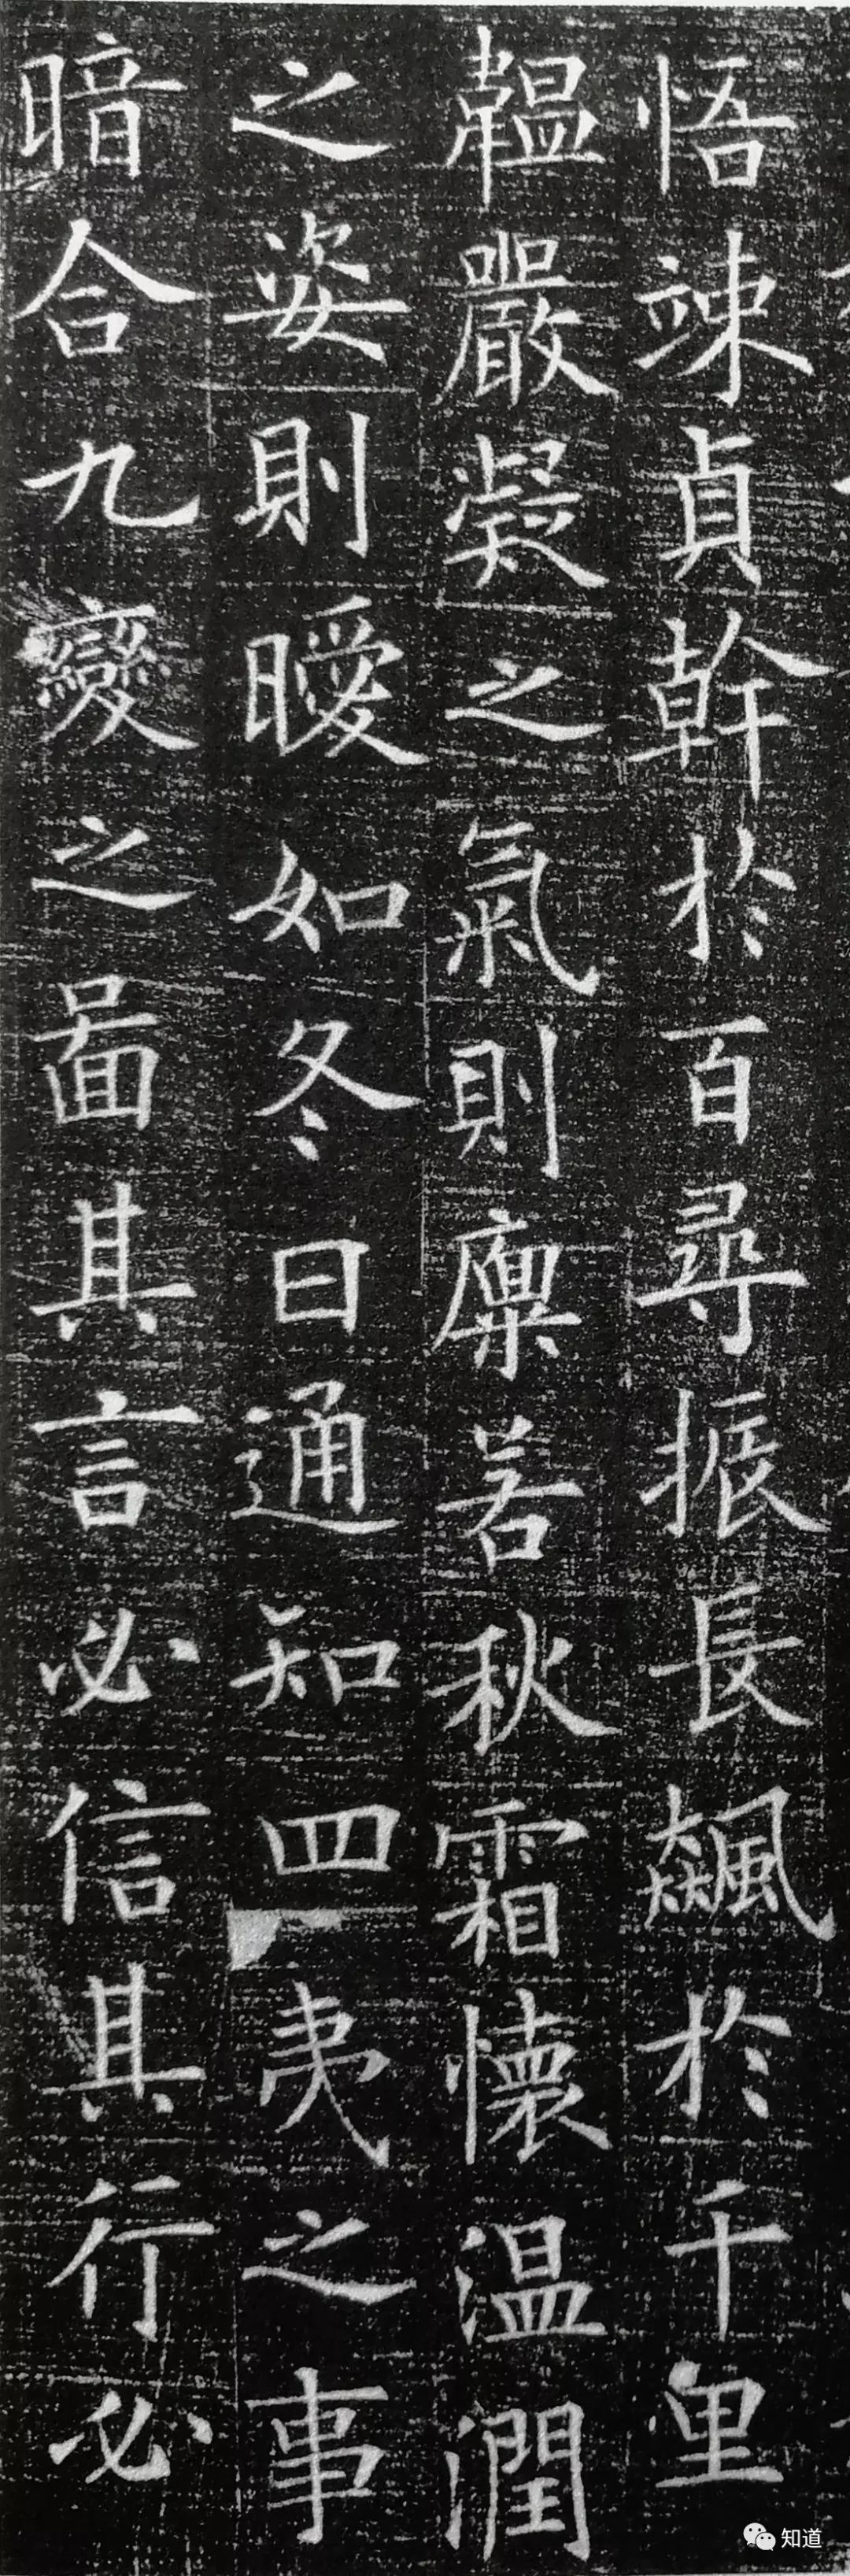 悟竦貞幹於百尋振長飈於千里
韞嚴凝之氣則凜若秋霜懷温潤
之姿則曖如冬日通知四夷之事
暗合九變之啚其言必信其行必
知道